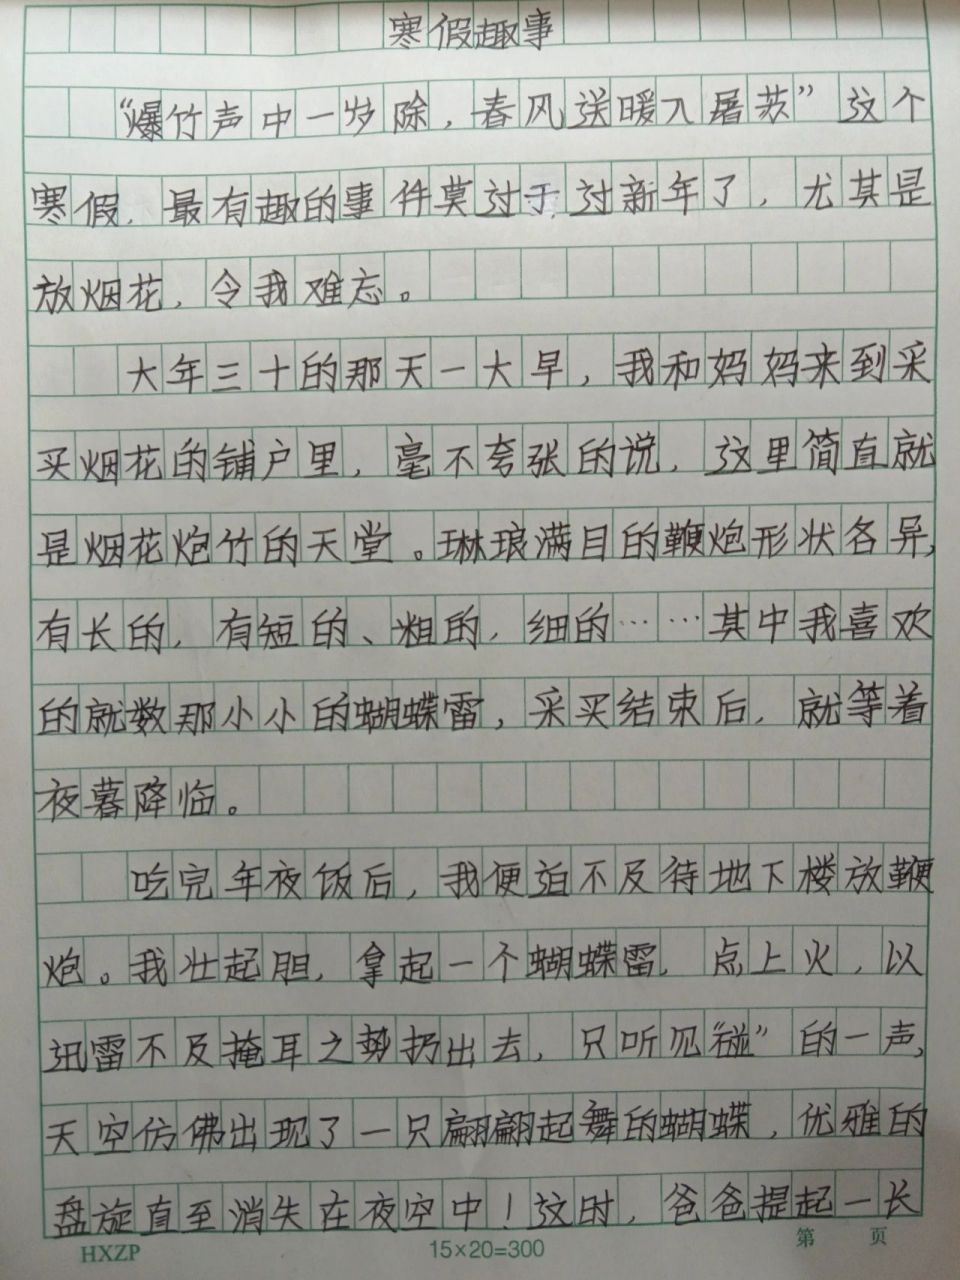 寒假趣事
“爆竹声中一岁除，春风送暖入屠苏”这个
寒假，最有趣的事件莫过于过新年了，尤其是
放烟花，令我难忘。
大年三十的那天一大早，我和妈妈来到采
买烟花的铺户里，毫不夸张的说，这里简直就
是烟花炮竹的天堂。琳琅满目的鞭炮形状各异，
有长的，有短的、粗的，细的……其中我喜欢
的就数那小小的蝴蝶雷，采买结束后，就等着
夜暮降临。
吃完年夜饭后，我便迫不及待地下楼放鞭
炮。我壮起胆，拿起一个蝴蝶雷，点上火，以
迅雷不及掩耳之势扔出去，只听见“碰”的一声，
天空仿佛出现了一只翩翩起舞的蝴蝶，优雅的
盘旋直至消失在夜空中！这时，爸爸提起一长
HXZP
15×20=300
第 页